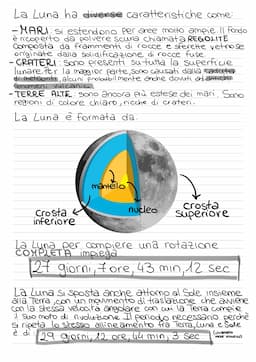 La Luna ha diverse caratteristiche come:
-MARI: si estendono per aree molto ampie. Il fondo
è ricoperto da polvere scura chiamata REGOLITE
composta da frammenti di rocce e sferette vetrose
originate dalla solidificazione di rocce fuse.
-CRATERI: sono presenti su tutta la superficie
lunare. Per la maggior parte, sono causati dalla caduta
di meteoriti, alcuni probabilmente anche dovuti ad antichi
fenomeni vulcanici.
-TERRE ALTE: sono ancora più estese dei mari. Sono
regioni di colore chiaro, ricche di crateri.
La Luna è formata da:
mantello
nucleo
crosta
inferiore
crosta
superiore
La Luna per compiere una rotazione
COMPLETA impiega
27 giorni, 7 ore, 43 min, 12 sec
La Luna si sposta anche attorno al Sole insieme
alla Terra, con un movimento di traslazione che avviene
con la stessa velocità angolare con cui la Terra compie
il suo moto di rivoluzione. Il periodo necessario perché
si ripeta lo stesso allineamento fra Terra, Luna e Sole
è di
29 giorni, 12 ore, 44 min, 3 sec